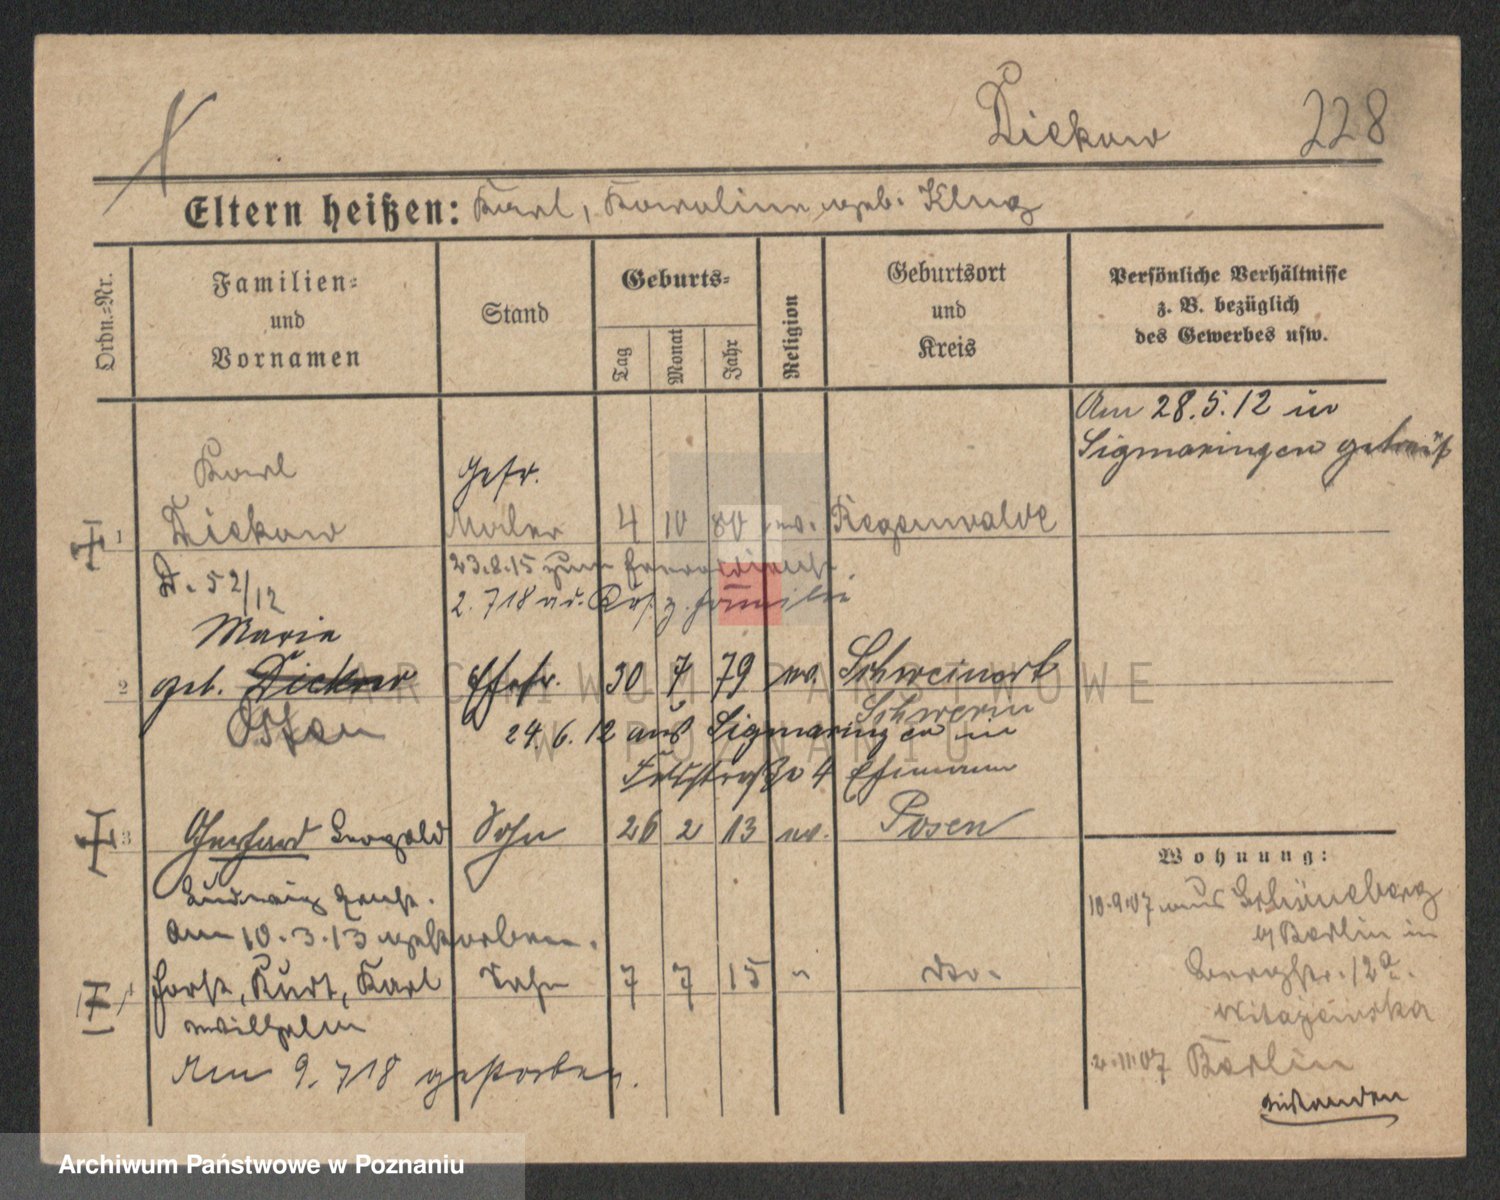 Dickow 228
Eltern heißen: Karl, Karoline geb. Klug
Ordn.=Nr.
Familien=
und
Vornamen
Stand
Geburts=
Tag
Monat
Jahr
Religion
Geburtsort
und
Kreis
Persönliche Verhältnisse
z. B. bezüglich
des Gewerbes usw.
Am 28.5.12 in
Sigmaringen getraut
Karl gesr.
1 Dickow Maler 4 10 80 ev. Regenwalde
D. 52/12 23.8.15 zum
2.7 18 Familie
Marie
2 geb. Dickow Ehefr. 30 7 79 ev. Schweinert
Osten Schwerin
24.6.12 aus Sigmaringen in
4 Ehemann
3 Gerhard Leopold Sohn 26 2 13 ev. Posen
Ludwig Ernst.
Am 10.3.13 gestorben.
Horst, Kurt, Karl Sohn 7 7 15 " do.
Wilhelm
Am 9.7 18 gestorben.
Wohnung:
10.9.07 aus Schöneberg
b/ Berlin in
Bergstr. 12a.
2.11.07 Berlin
ARCHIWUM PAŃSTWOWE
W POZNANIU
Archiwum Państwowe w Poznaniu